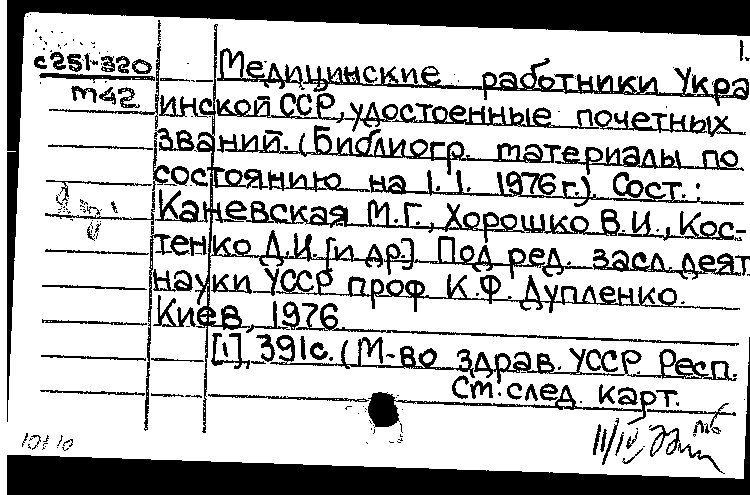 1.
с251-320
м42
Медицинские работники Укра
инской ССР, удостоенные почетных
званий. (Библиогр. материалы по
состоянию на 1.1. 1976г.). Сост.:
Каневская М.Г., Хорошко В.И., Кос-
тенко Д.И. [и др.] Под ред. засл. деят
науки УССР проф. К.Ф. Дупленко.
Киев, 1976.
[1], 391с. (М-во здрав. УССР. Респ.
Ст. след. карт.